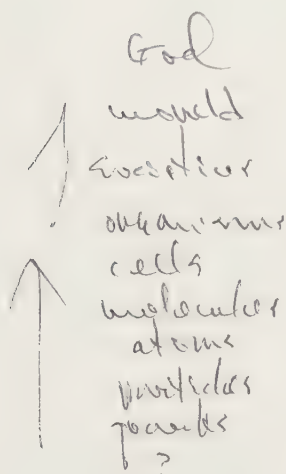 God
world
societies
organisms
cells
molecules
atoms
particles
quarks
?